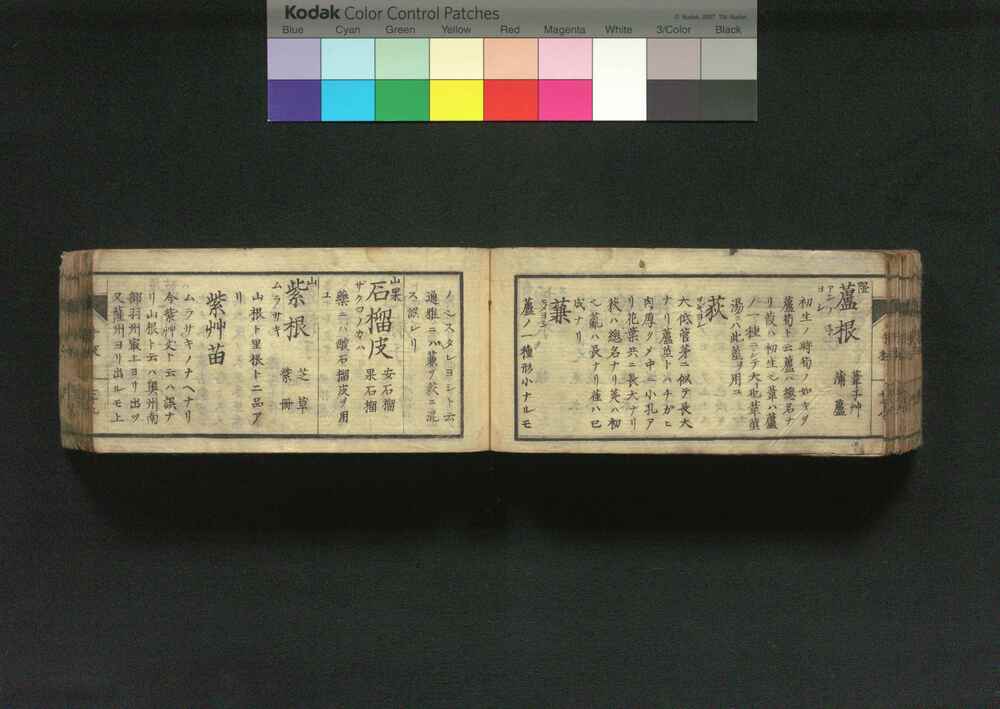 Kodak Color Control Patches
© Kodak, 2007 TM: Kodak
Blue Cyan Green Yellow Red Magenta White 3/Color Black
蘆根 葦子艸 蒲蘆
初生ノ時筍ノ如キヲ
蘆筍ト云蘆ハ總名ナ
リ葭ハ初生也葦ハ蘆
ノ一種ニシテ大也葦莖
湯ニハ此莖ヲ用ユ
荻 ヲギヨシ
大低菅茅ニ似テ長大
ナリ蘆荻トハチガヒ
肉厚クメ中ニ小孔ア
リ花葉共ニ長大ナリ
荻ハ總名ナリ菼ハ初
也薍ハ長ナリ萑ハ已
成ナリ
蒹
蘆ノ一種形小ナルモ
ノ也スタレヨシト云
通雅ニハ蒹ヲ荻ニ混
ス誤レリ
山果
石榴皮 安石榴
ザクロノカハ 果石榴
藥ニハ酸石榴皮ヲ用
ユ
山
紫根 芝草
ムラサキ 紫冊
山根ト里根ト二品ア
リ
紫艸苗
ムラサキノナヘナリ
今紫艸丈ト云ハ誤ナ
リ山根ト云ハ奧州南
部羽州最上ヨリ出ツ
又薩州ヨリ出ルモ上